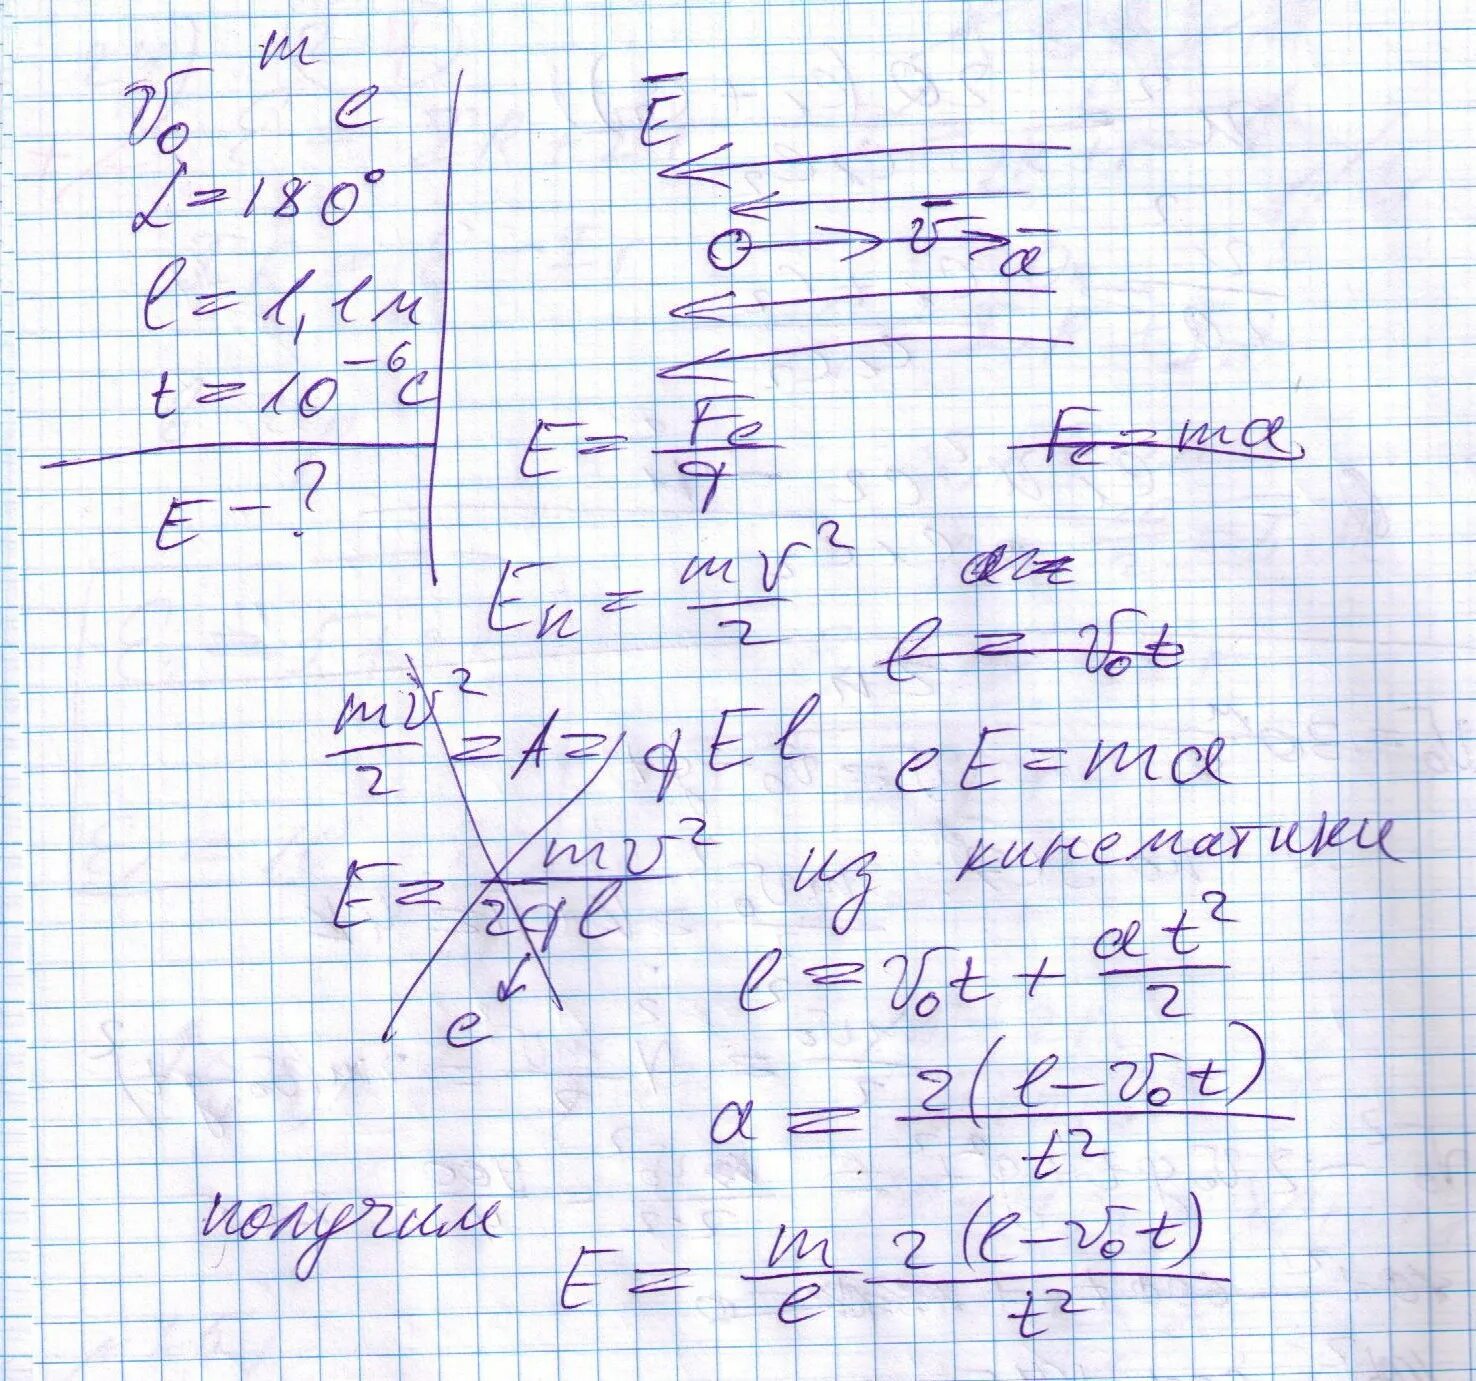 m
v₀ e
α=180°
l=1,1м
t=10⁻⁶c
E-?
E̅
v̅ a̅
E=Fe/q
Fe=ma
Eк=mv²/2
a=
l=v₀t
mv²/2=A=qEl
eE=ma
E=mv²/2ql
e
из кинематики
l=v₀t+at²/2
a=2(l-v₀t)/t²
получим
E=m/e 2(l-v₀t)/t²